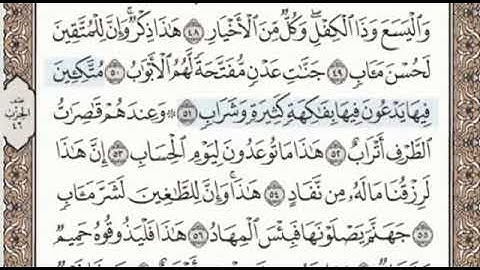 وَٱلْيَسَعَ وَذَا ٱلْكِفْلِ ۖ وَكُلٌّ مِّنَ ٱلْأَخْيَارِ ٤٨ هَـٰذَا ذِكْرٌ ۚ وَإِنَّ لِلْمُتَّقِينَ
لَحُسْنَ مَـَٔابٍ ٤٩ جَنَّـٰتِ عَدْنٍ مُّفَتَّحَةً لَّهُمُ ٱلْأَبْوَٰبُ ٥٠ مُتَّكِـِٔينَ
فِيهَا يَدْعُونَ فِيهَا بِفَـٰكِهَةٍ كَثِيرَةٍ وَشَرَابٍ ٥١ ۞ وَعِندَهُمْ قَـٰصِرَٰتُ
ٱلطَّرْفِ أَتْرَابٌ ٥٢ هَـٰذَا مَا تُوعَدُونَ لِيَوْمِ ٱلْحِسَابِ ٥٣ إِنَّ هَـٰذَا
لَرِزْقُنَا مَا لَهُۥ مِن نَّفَادٍ ٥٤ هَـٰذَا ۚ وَإِنَّ لِلطَّـٰغِينَ لَشَرَّ مَـَٔابٍ
٥٥ جَهَنَّمَ يَصْلَوْنَهَا فَبِئْسَ ٱلْمِهَادُ ٥٦ هَـٰذَا فَلْيَذُوقُوهُ حَمِيمٌ
الحزب
٤٦